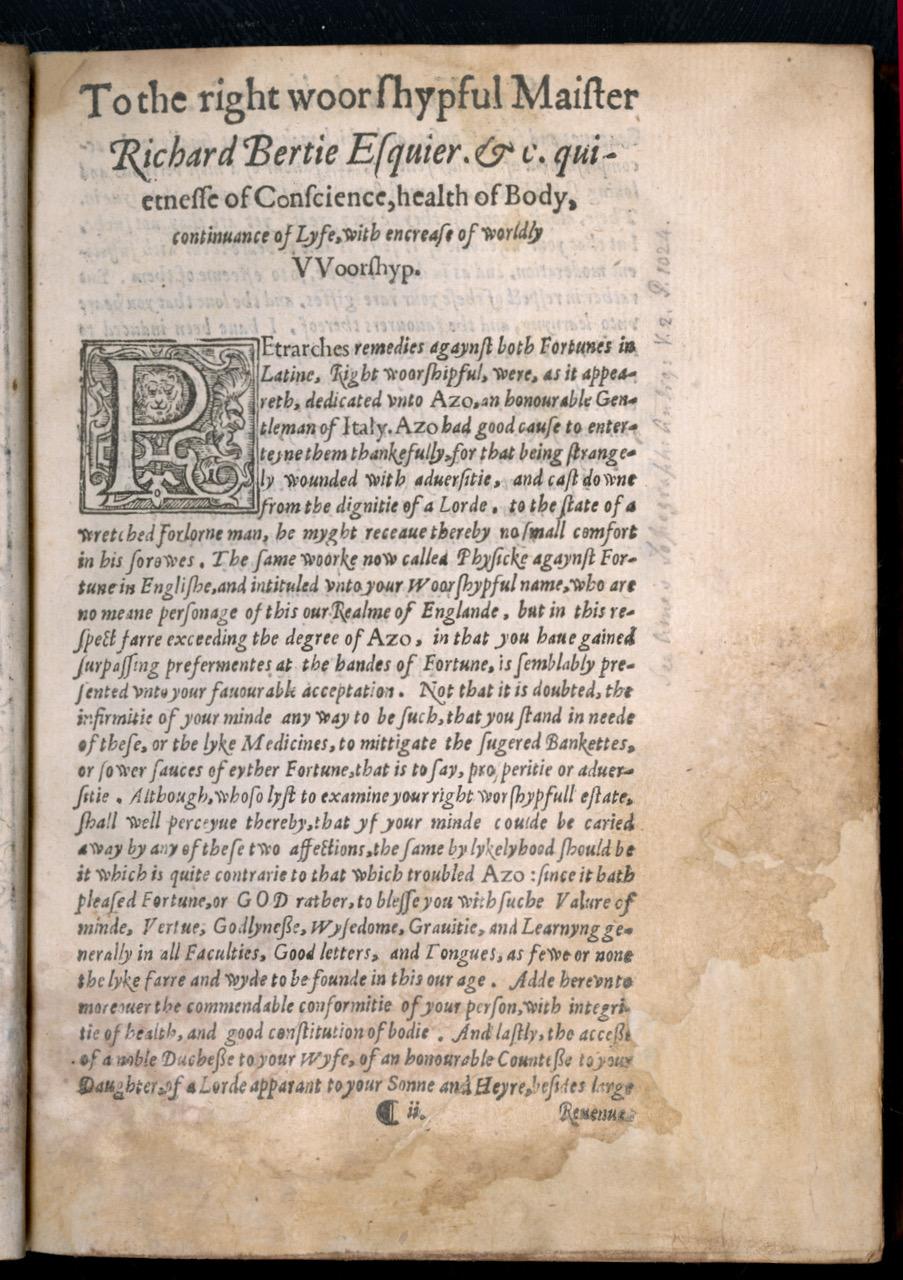 To the right woorſhypful Maiſter
Richard Bertie Eſquier. & c. qui-
etneſſe of Conſcience, health of Body,
continuance of Lyfe, with encreaſe of worldly
VVoorſhyp.
PEtrarches remedies agaynſt both Fortunes in
Latine, Right woorſhipful, were, as it appea-
reth, dedicated vnto Azo, an honourable Gen-
tleman of Italy. Azo had good cauſe to enter-
teyne them thankefully, for that being ſtrange-
ly wounded with aduerſitie, and caſt downe
from the dignitie of a Lorde, to the ſtate of a
wretched forlorne man, he myght receaue thereby no ſmall comfort
in his ſorowes. The ſame woorke now called Phyſicke agaynſt For-
tune in Engliſhe, and intituled vnto your Woorſhypful name, who are
no meane perſonage of this our Realme of Englande, but in this re-
ſpect farre exceeding the degree of Azo, in that you haue gained
ſurpaſſing prefermentes at the handes of Fortune, is ſemblably pre-
ſented vnto your fauourable acceptation. Not that it is doubted, the
infirmitie of your minde any way to be ſuch, that you ſtand in neede
of theſe, or the lyke Medicines, to mittigate the ſugered Bankettes,
or ſower ſauces of eyther Fortune, that is to ſay, proſperitie or aduer-
ſitie. Although, whoſo lyſt to examine your right worſhypfull eſtate,
ſhall well perceyue thereby, that yf your minde coulde be caried
away by any of theſe two affections, the ſame by lykelyhood ſhould be
it which is quite contrarie to that which troubled Azo: ſince it hath
pleaſed Fortune, or GOD rather, to bleſſe you with ſuche Valure of
minde, Vertue, Godlyneße, Wyſedome, Grauitie, and Learnyng ge-
nerally in all Faculties, Good letters, and Tongues, as fewe or none
the lyke farre and wyde to be founde in this our age. Adde herevnto
moreouer the commendable conformitie of your perſon, with integri-
tie of health, and good conſtitution of bodie. And laſtly, the acceße
of a noble Ducheße to your Wyfe, of an honourable Counteße to your
Daughter, of a Lorde apparant to your Sonne and Heyre, beſides large
¶ ii. Reuenue
V. 2. P. 1024.